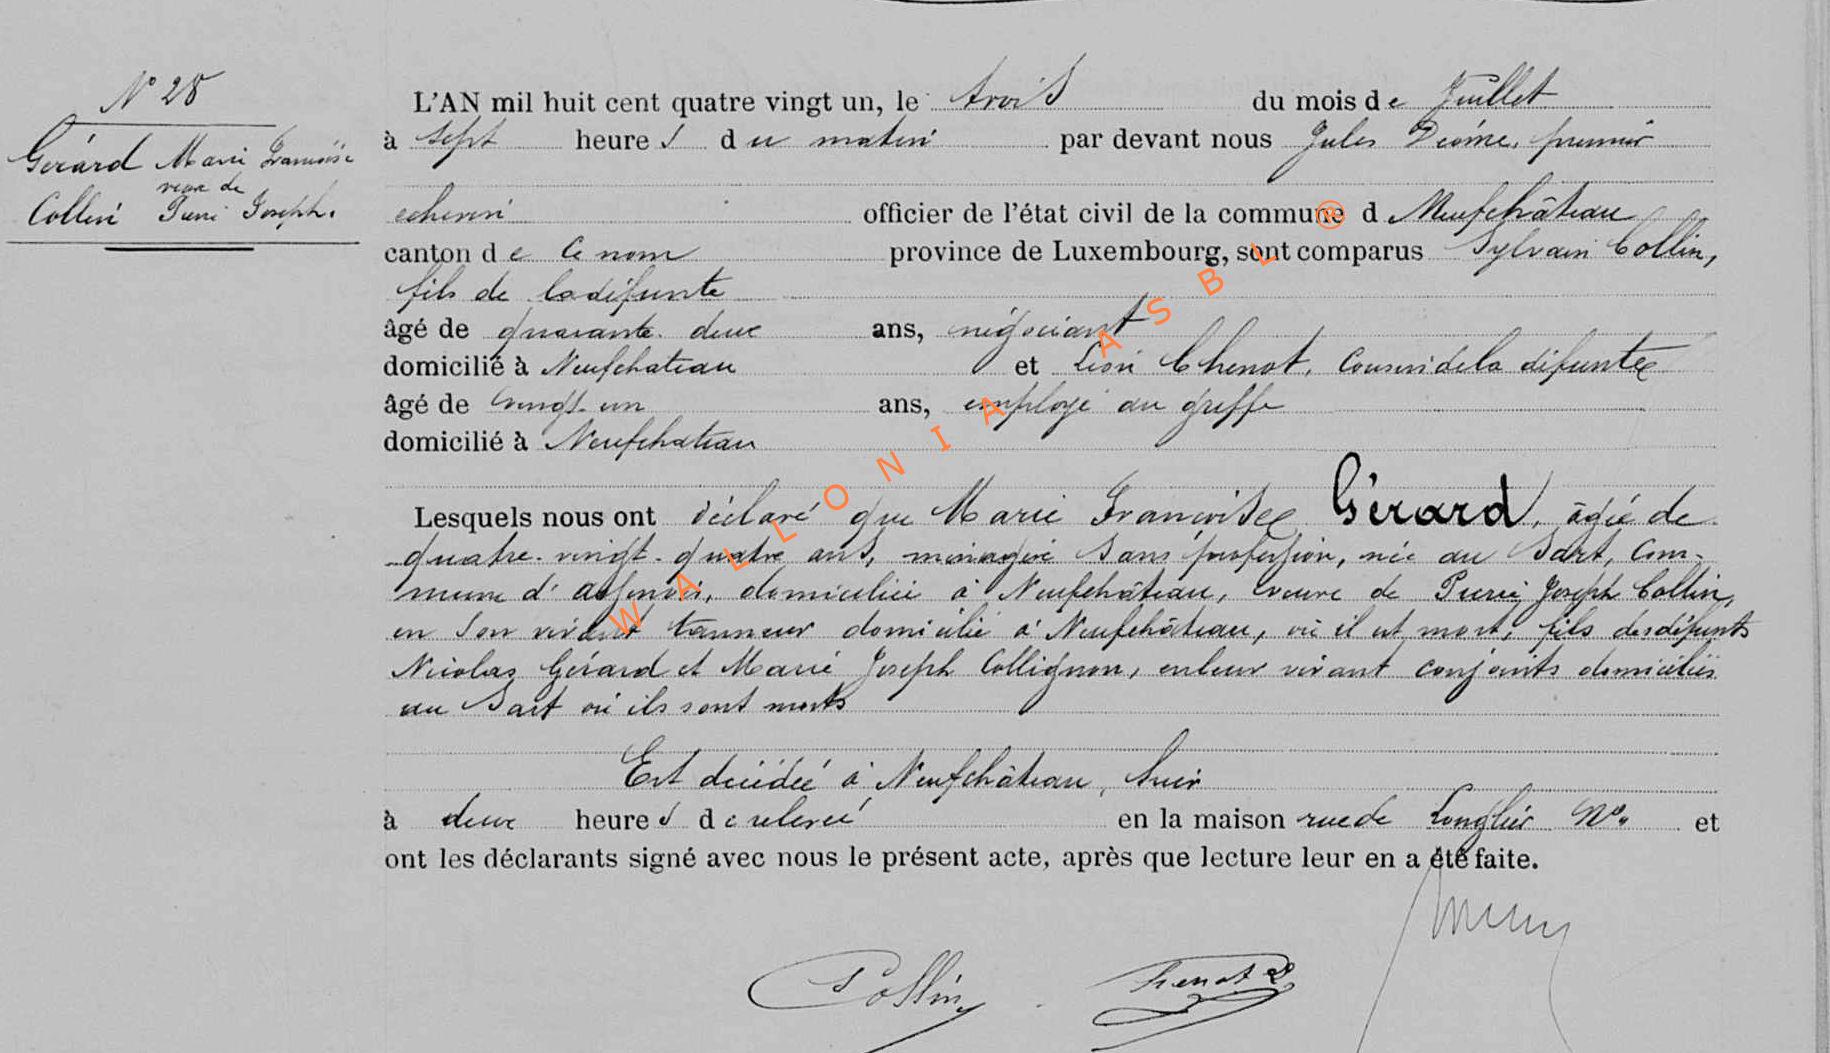 N° 28
Gérard Marie Françoise
veuve de
Collin Pierre Joseph.
L'AN mil huit cent quatre vingt un, le trois du mois de Juillet
à sept heures du matin par devant nous Jules premier
échevin officier de l'état civil de la commune d Neufchâteau
canton de Ce nom province de Luxembourg, sont comparus Sylvain Collin,
fils de la défunte
âgé de quarante deux ans, négociant
domicilié à Neufchateau et Léon Chenot, Cousin de la défunte
âgé de vingt-un ans, employé au greffe
domicilié à Neufchateau
Lesquels nous ont déclaré que Marie Françoise Gérard, âgée de
quatre-vingt-quatre ans, ménagère sans profession, née au Sart, Com-
mune d'Assenois, domiciliée à Neufchâteau, veuve de Pierre Joseph Collin,
en son vivant tanneur domicilié à Neufchâteau, où il est mort, fils des défunts
Nicolas Gérard et Marie Joseph Collignon, en leur vivant conjoints domiciliés
au Sart où ils sont morts
Est décédée à Neufchâteau, hier
à deux heures de relevée en la maison rue de Longlier N°. et
ont les déclarants signé avec nous le présent acte, après que lecture leur en a été faite.
Collin Chenot
WALLONIA ASBL ®